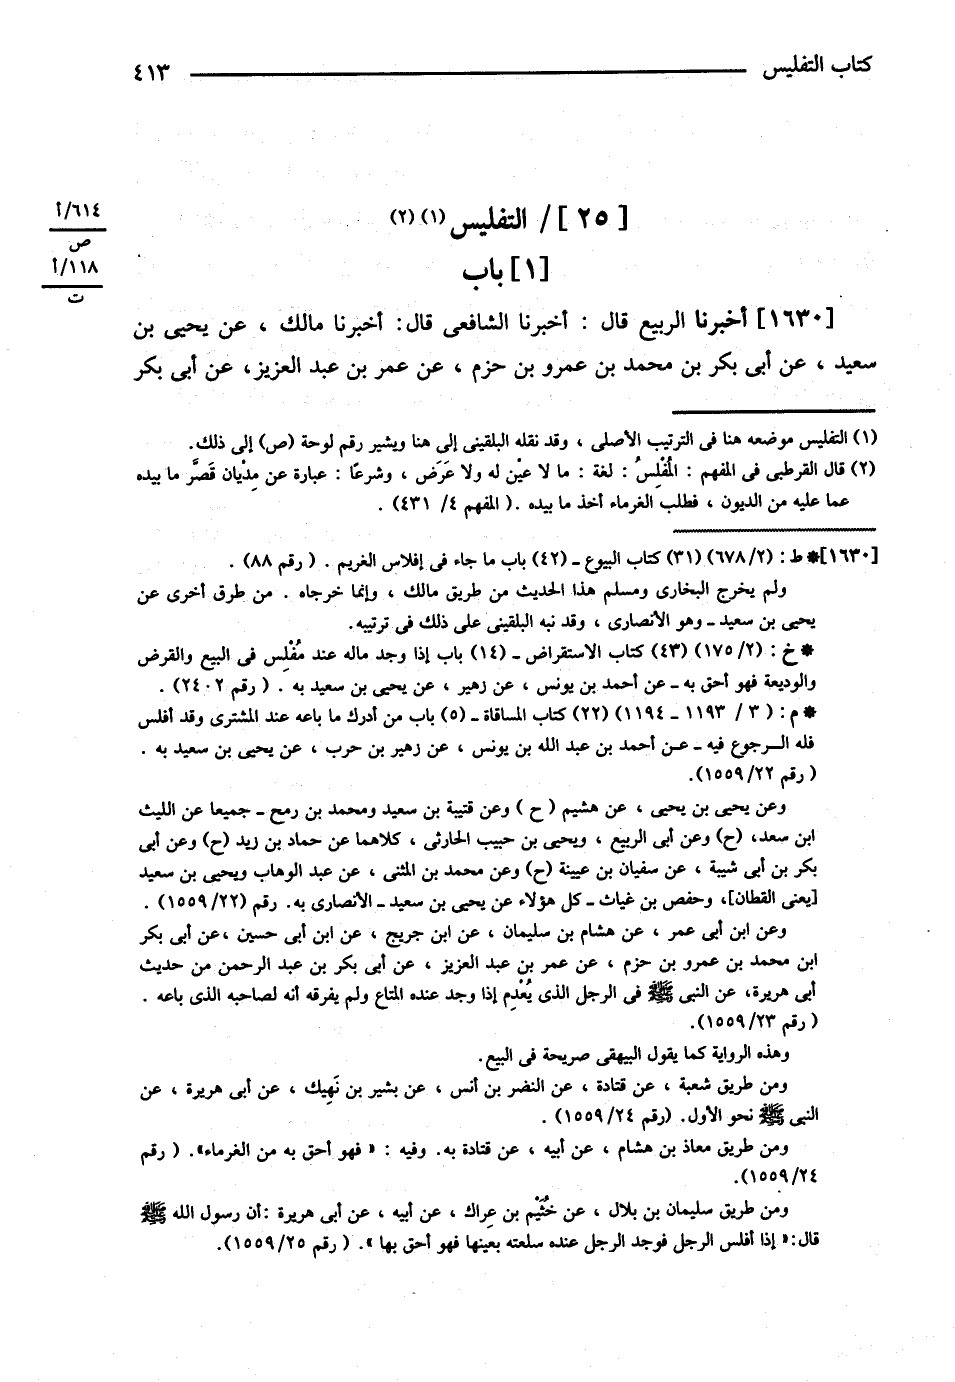 كتاب التفليس ٤١٣
٦١٤/أ
ص
١١٨/أ
ت
[ ٢٥ ] / التفليس (١) (٢)
[١] باب
[١٦٣٠] أخبرنا الربيع قال : أخبرنا الشافعى قال: أخبرنا مالك ، عن يحيى بن
سعيد ، عن أبى بكر بن محمد بن عمرو بن حزم ، عن عمر بن عبد العزيز، عن أبى بكر
(١) التفليس موضعه هنا فى الترتيب الأصلى ، وقد نقله البلقينى إلى هنا ويشير رقم لوحة (ص) إلى ذلك.
(٢) قال القرطبى فى المفهم : المُفْلِسُ : لغة : ما لا عيْن له ولا عَرَض ، وشرعًا : عبارة عن مِدْيان قَصَّر ما بيده
عما عليه من الديون ، فطلب الغرماء أخذ ما بيده .( المفهم ٤/ ٤٣١) .
[١٦٣٠]* ط : (٢/ ٦٧٨) (٣١) كتاب البيوع ـ (٤٢) باب ما جاء فى إفلاس الغريم . ( رقم ٨٨) .
ولم يخرج البخارى ومسلم هذا الحديث من طريق مالك ، وإنما خرجاه . من طرق أخرى عن
يحيى بن سعيد ـ وهو الأنصارى ، وقد نبه البلقينى على ذلك فى ترتيبه.
* خ : (٢/ ١٧٥) (٤٣) كتاب الاستقراض ـ (١٤) باب إذا وجد ماله عند مُفْلِس فى البيع والقرض
والوديعة فهو أحق به ـ عن أحمد بن يونس ، عن زهير ، عن يحيى بن سعيد به . ( رقم ٢٤٠٢) .
* م : ( ٣ / ١١٩٣ ـ ١١٩٤) (٢٢) كتاب المساقاة ـ (٥) باب من أدرك ما باعه عند المشترى وقد أفلس
فله الـرجوع فيه ـ عـن أحمد بن عبد الله بن يونس ، عن زهير بن حرب ، عن يحيى بن سعيد به .
( رقم ٢٢/ ١٥٥٩).
وعن يحيى بن يحيى ، عن هشيم ( ح ) وعن قتيبة بن سعيد ومحمد بن رمح ـ جميعا عن الليث
ابن سعد، (ح) وعن أبى الربيع ، ويحيى بن حبيب الحارثى ، كلاهما عن حماد بن زيد (ح) وعن أبى
بكر بن أبى شيبة ، عن سفيان بن عيينة (ح) وعن محمد بن المثنى ، عن عبد الوهاب ويحيى بن سعيد
[يعنى القطان]، وحفص بن غياث ـ كل هؤلاء عن يحيى بن سعيد ـ الأنصارى به. رقم (٢٢/ ١٥٥٩) .
وعن ابن أبى عمر ، عن هشام بن سليمان ، عن ابن جريج ، عن ابن أبى حسين ،عن أبى بكر
ابن محمد بن عمرو بن حزم ، عن عمر بن عبد العزيز ، عن أبى بكر بن عبد الرحمن من حديث
أبى هريرة، عن النبى ﷺ فى الرجل الذى يُعْدِم إذا وجد عنده المتاع ولم يفرقه أنه لصاحبه الذى باعه .
( رقم ٢٣/ ١٥٥٩).
وهذه الرواية كما يقول البيهقى صريحة فى البيع.
ومن طريق شعبة ، عن قتادة ، عن النضر بن أنس ، عن بشير بن نَهِيك ، عن أبى هريرة ، عن
النبى ﷺ نحو الأول. (رقم ٢٤/ ١٥٥٩) .
ومن طريق معاذ بن هشام ، عن أبيه ، عن قتادة به. وفيه : « فهو أحق به من الغرماء». ( رقم
٢٤/ ١٥٥٩).
ومن طريق سليمان بن بلال ، عن خُثَيْم بن عِراك ، عن أبيه ، عن أبى هريرة :أن رسول الله ﷺ
قال:« إذا أفلس الرجل فوجد الرجل عنده سلعته بعينها فهو أحق بها ». ( رقم ٢٥/ ١٥٥٩).